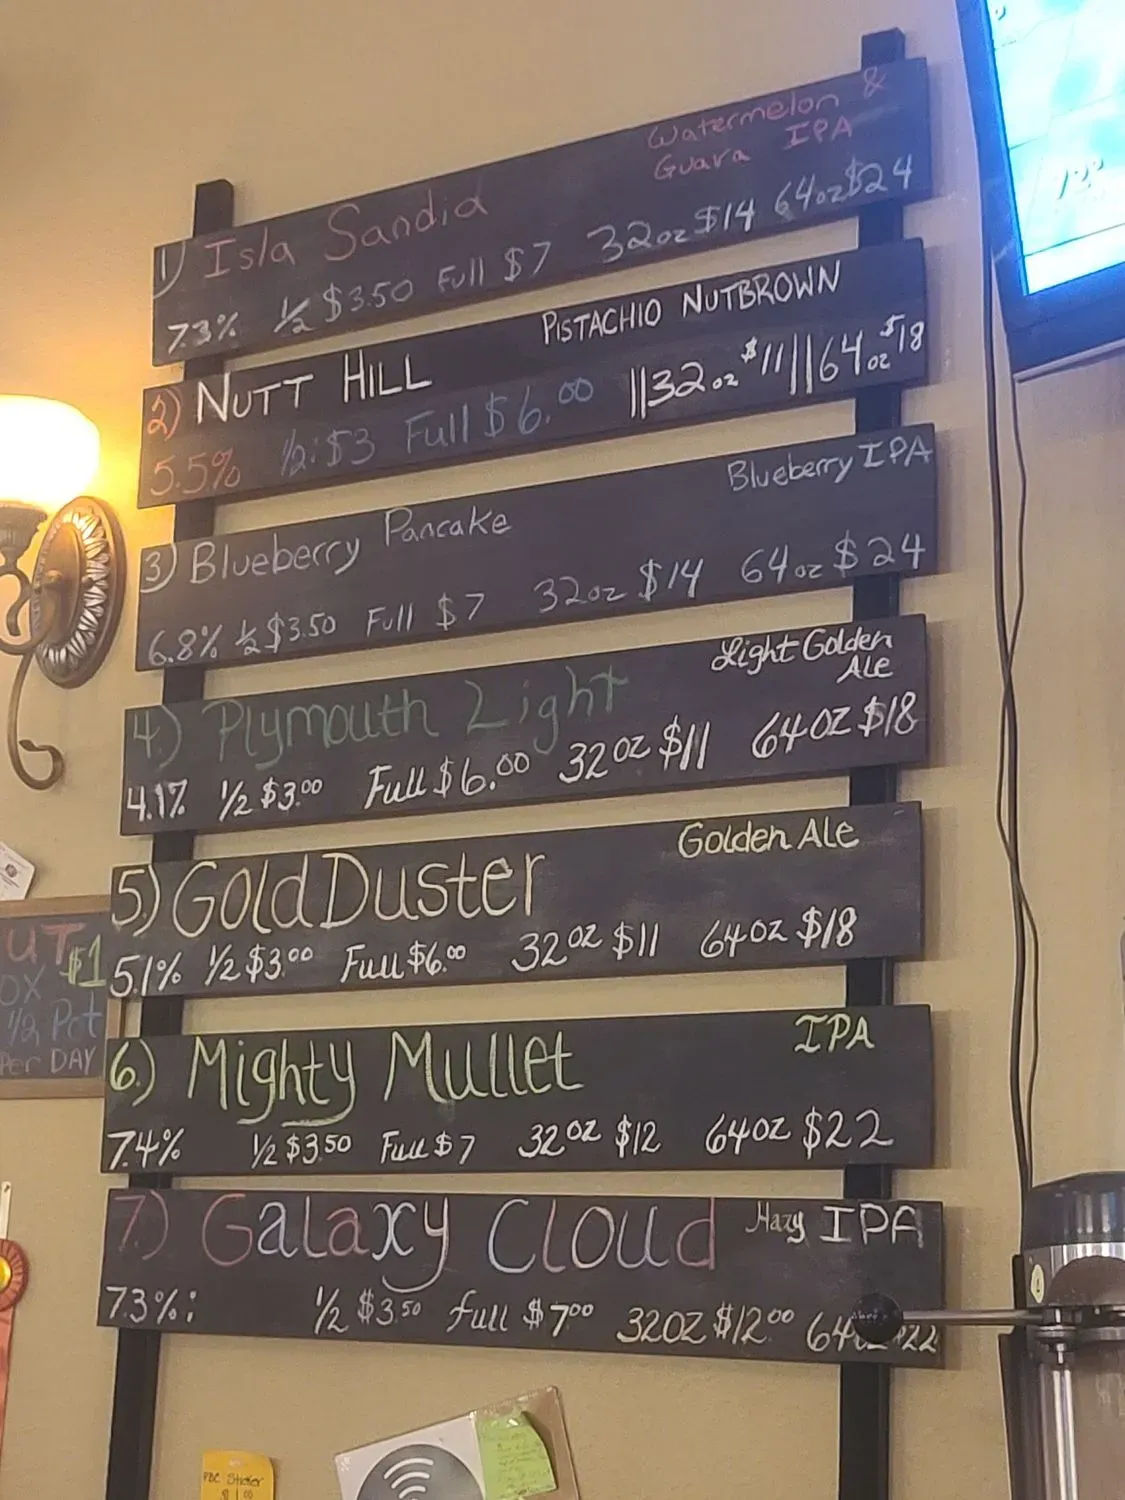 Watermelon &
Guava IPA
1) Isla Sandia
7.3% 1/2 $3.50 Full $7 32oz $14 64oz $24
PISTACHIO NUTBROWN
2) NUTT HILL
5.5% 1/2: $3 Full $6.00 ||32oz $11||64oz $18
Blueberry IPA
3) Blueberry Pancake
6.8% 1/2 $3.50 Full $7 32oz $14 64oz $24
Light Golden
ALE
4) Plymouth Light
4.1% 1/2 $3.00 Full $6.00 32oz $11 64oz $18
Golden Ale
5) Gold Duster
5.1% 1/2 $3.00 Full $6.00 32oz $11 64oz $18
IPA
6.) Mighty Mullet
7.4% 1/2 $3.50 Full $7 32oz $12 64oz $22
7.) Galaxy Cloud Hazy IPA
7.3%: 1/2 $3.50 full $7.00 32oz $12.00 64oz $22
UT $1
OX
1/2 Pct
Per DAY
PBC Sticker
$1.00